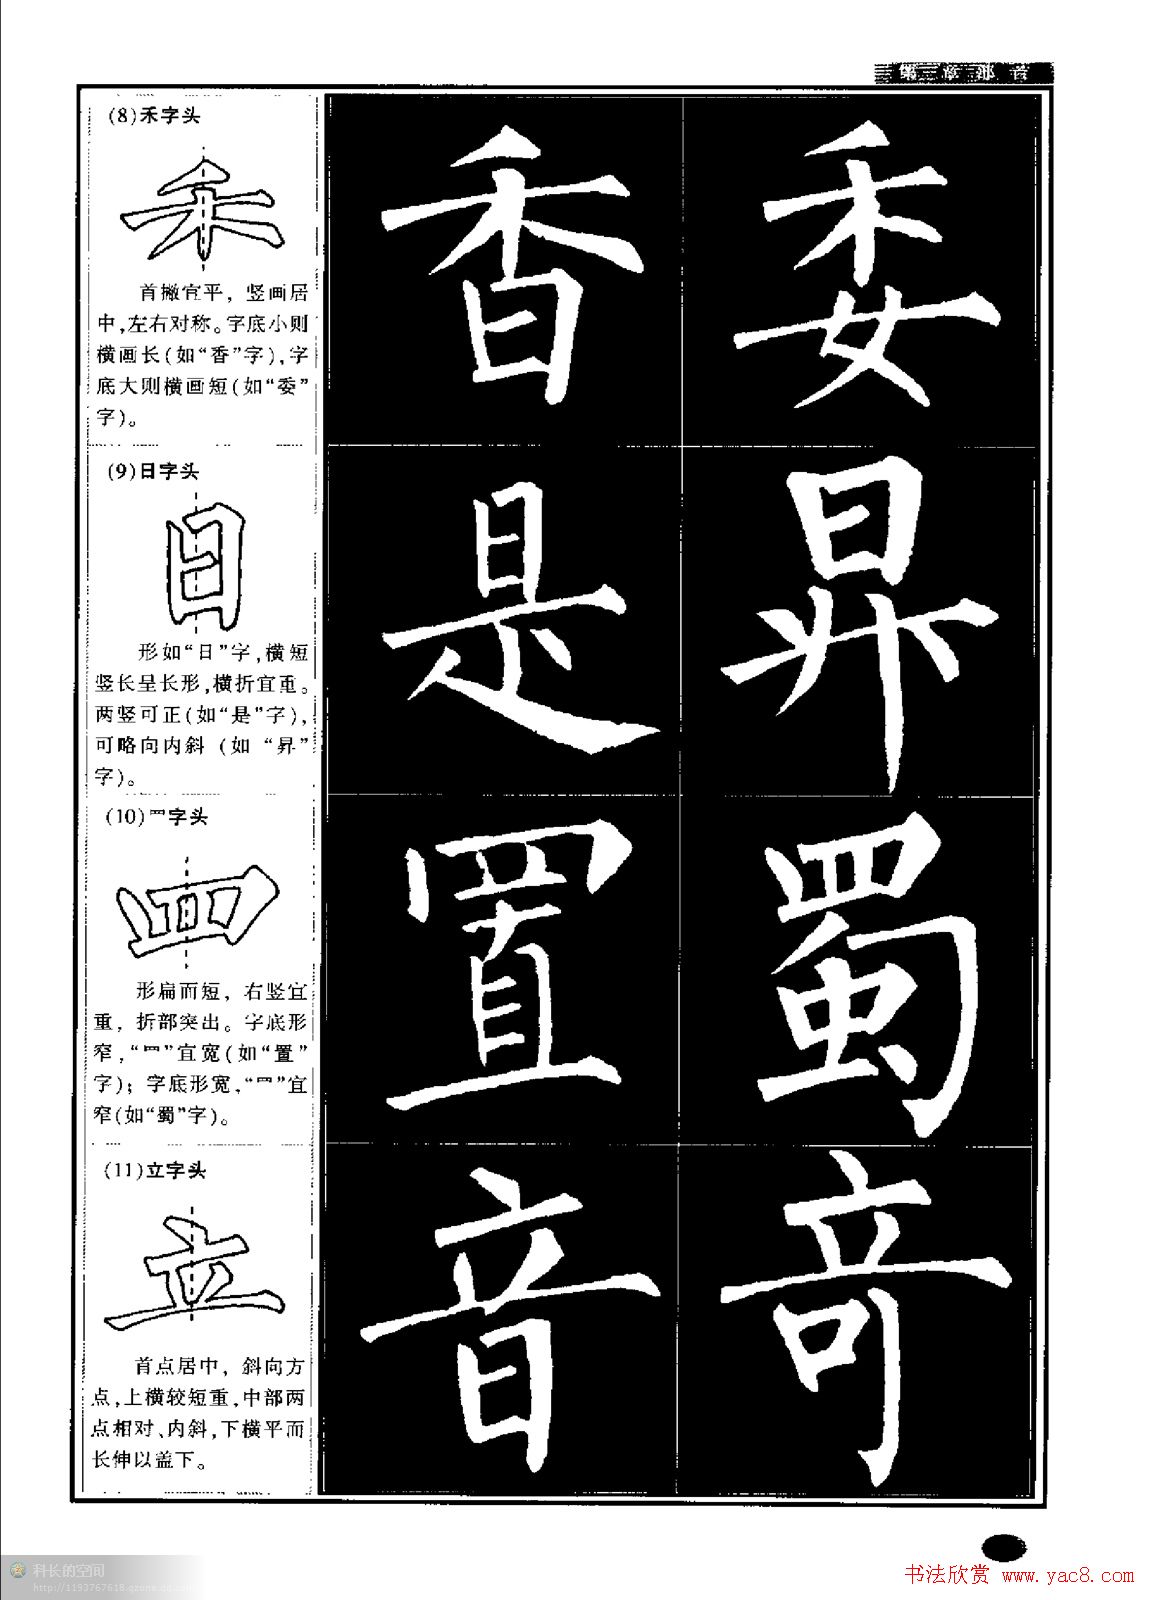 第三章 部首
(8)禾字头
禾
首撇宜平，竖画居
中,左右对称。字底小则
横画长(如“香”字),字
底大则横画短(如“委”
字)。
香 委
(9)日字头
日
形如“日”字,横短
竖长呈长形,横折宜重。
两竖可正(如“是”字),
可略向内斜(如“昇”
字)。
是 昇
(10)罒字头
罒
形扁而短，右竖宜
重，折部突出。字底形
窄,“罒”宜宽(如“置”
字)；字底形宽,“罒”宜
窄(如“蜀”字)。
置 蜀
(11)立字头
立
首点居中，斜向方
点,上横较短重,中部两
点相对、内斜,下横平而
长伸以盖下。
音 竒
科长的空间
http://1193767618.qzone.qq.com
书法欣赏 www.yac8.com